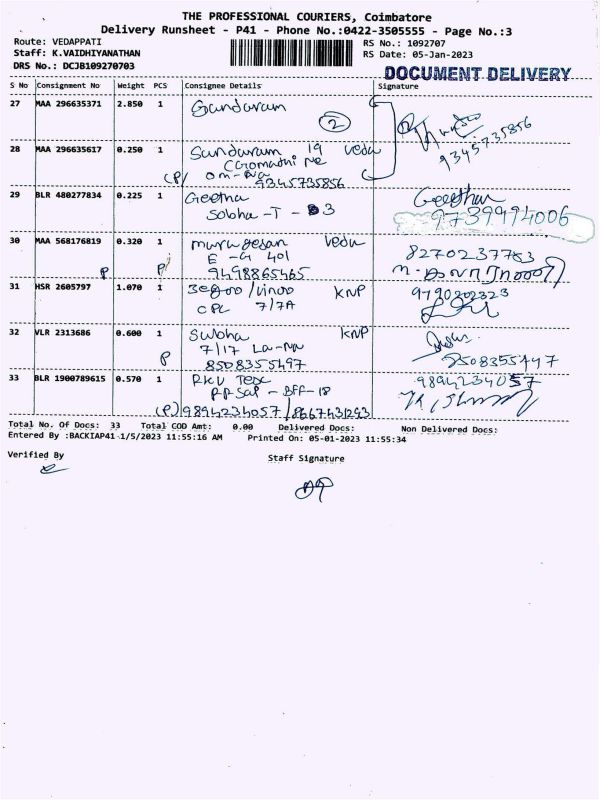 THE PROFESSIONAL COURIERS, Coimbatore
Delivery Runsheet - P41 - Phone No.:0422-3505555 - Page No.:3
Route: VEDAPPATI
Staff: K.VAIDHIYANATHAN
DRS No.: DCJB109270703
RS No.: 1092707
RS Date: 05-Jan-2023
DOCUMENT DELIVERY
S No Consignment No Weight PCS Consignee Details Signature
27 MAA 296635371 2.850 1 Sundaram
2
9345735856
28 MAA 296635617 0.250 1 Sundaram 19 Vedu
Gomathi
(P) 9345735856
29 BLR 480277834 0.225 1 Geetha Geetha
Sobha - T - 3 9739994006
30 MAA 568176819 0.320 1 murugesan Vedu 8270237753
E - G 401
P P 9498865465
31 HSR 2605797 1.070 1 KNP 9790302323
CPL 7/7A
32 VLR 2313686 0.600 1 Subha KNP
7/17 La-Na
P 8508355497 8508355447
33 BLR 1900789615 0.570 1 RKV Tex 9894234057
BFF-18
(P) 9894234057 / 8667431293
Total No. Of Docs: 33 Total COD Amt: 0.00 Delivered Docs: Non Delivered Docs:
Entered By :BACKIAP41-1/5/2023 11:55:16 AM Printed On: 05-01-2023 11:55:34
Verified By
Staff Signature